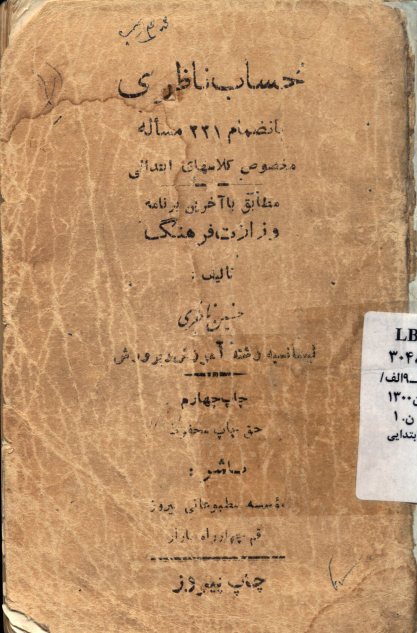 حساب ناظری
بانضمام ۲۲۱ مسأله
مخصوص کلاسهای ابتدائی
مطابق با آخرین برنامه
وزارت فرهنگ
تألیف :
حسین ناظری
لیسانسیه رشته آموزش و پرورش
چاپ چهارم
حق چاپ محفوظ
ناشر :
مؤسسه مطبوعاتی پیروز
قم چهارراه بازار
چاپ پیروز
LB
۳۰۴
۹الف/
۱۳۰۰
ن.۱
بتدایی